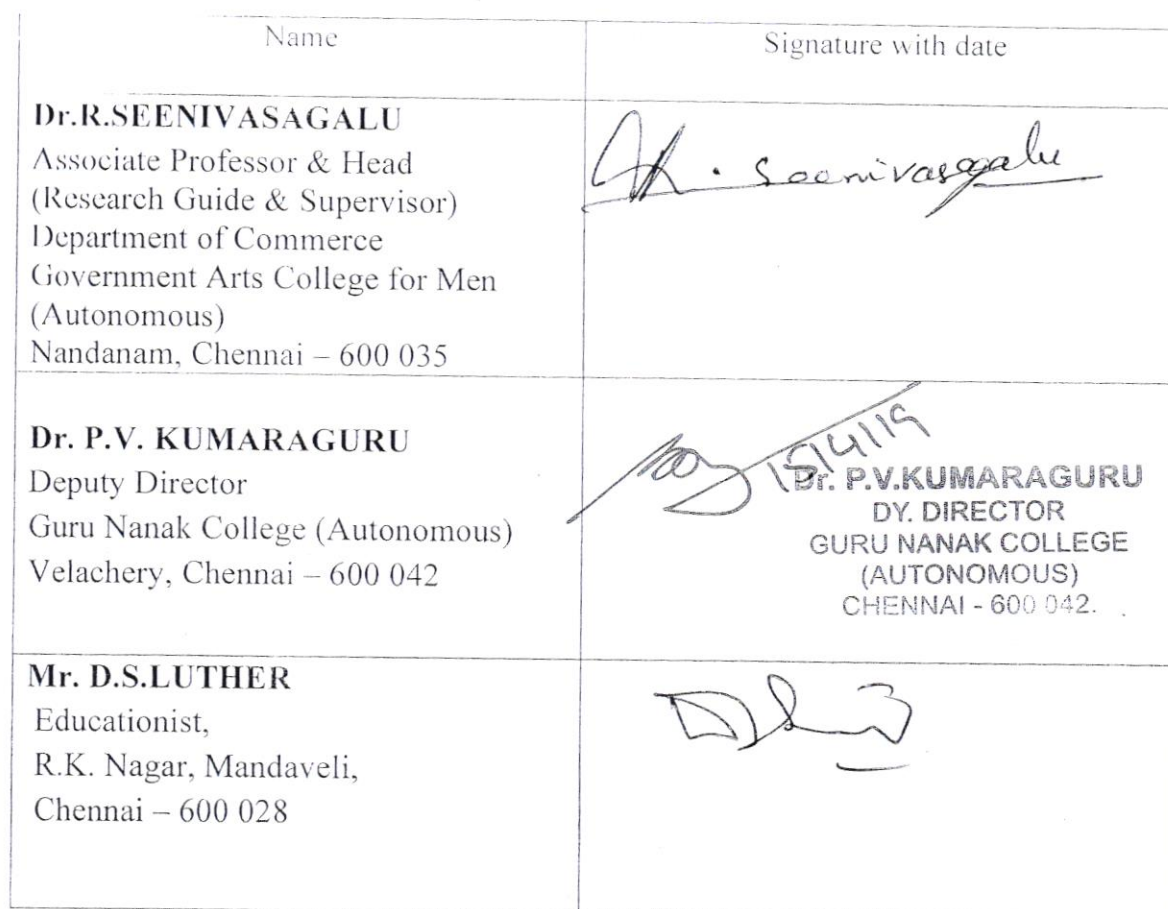 Name
Signature with date
Dr.R.SEENIVASAGALU
Associate Professor & Head
(Research Guide & Supervisor)
Department of Commerce
Government Arts College for Men
(Autonomous)
Nandanam, Chennai – 600 035
R. Seenivasagalu
Dr. P.V. KUMARAGURU
Deputy Director
Guru Nanak College (Autonomous)
Velachery, Chennai – 600 042
15/4/19
Dr. P.V.KUMARAGURU
DY. DIRECTOR
GURU NANAK COLLEGE
(AUTONOMOUS)
CHENNAI - 600 042.
Mr. D.S.LUTHER
Educationist,
R.K. Nagar, Mandaveli,
Chennai – 600 028